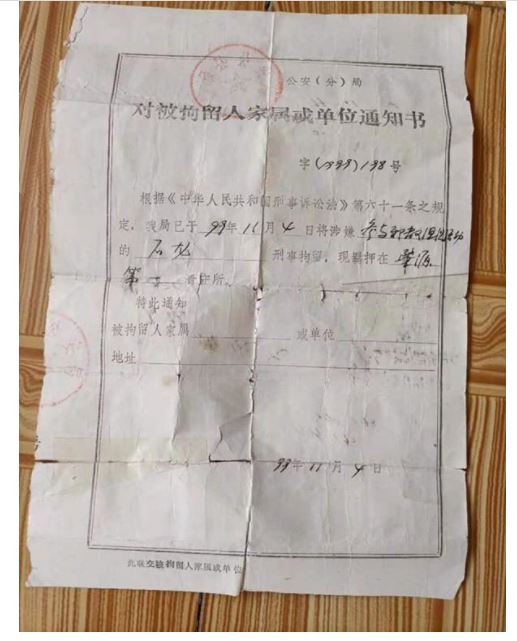 公安（分）局
对被拘留人家属或单位通知书
字（1999）138号
根据《中华人民共和国刑事诉讼法》第六十一条之规
定，我局已于 99年11月4日将涉嫌 参与邪教组织活动
的 石龙 刑事拘留，现羁押在
第 看守所。
特此通知
被拘留人家属 或单位
地址
99年11月4日
此联交被拘留人家属或单位